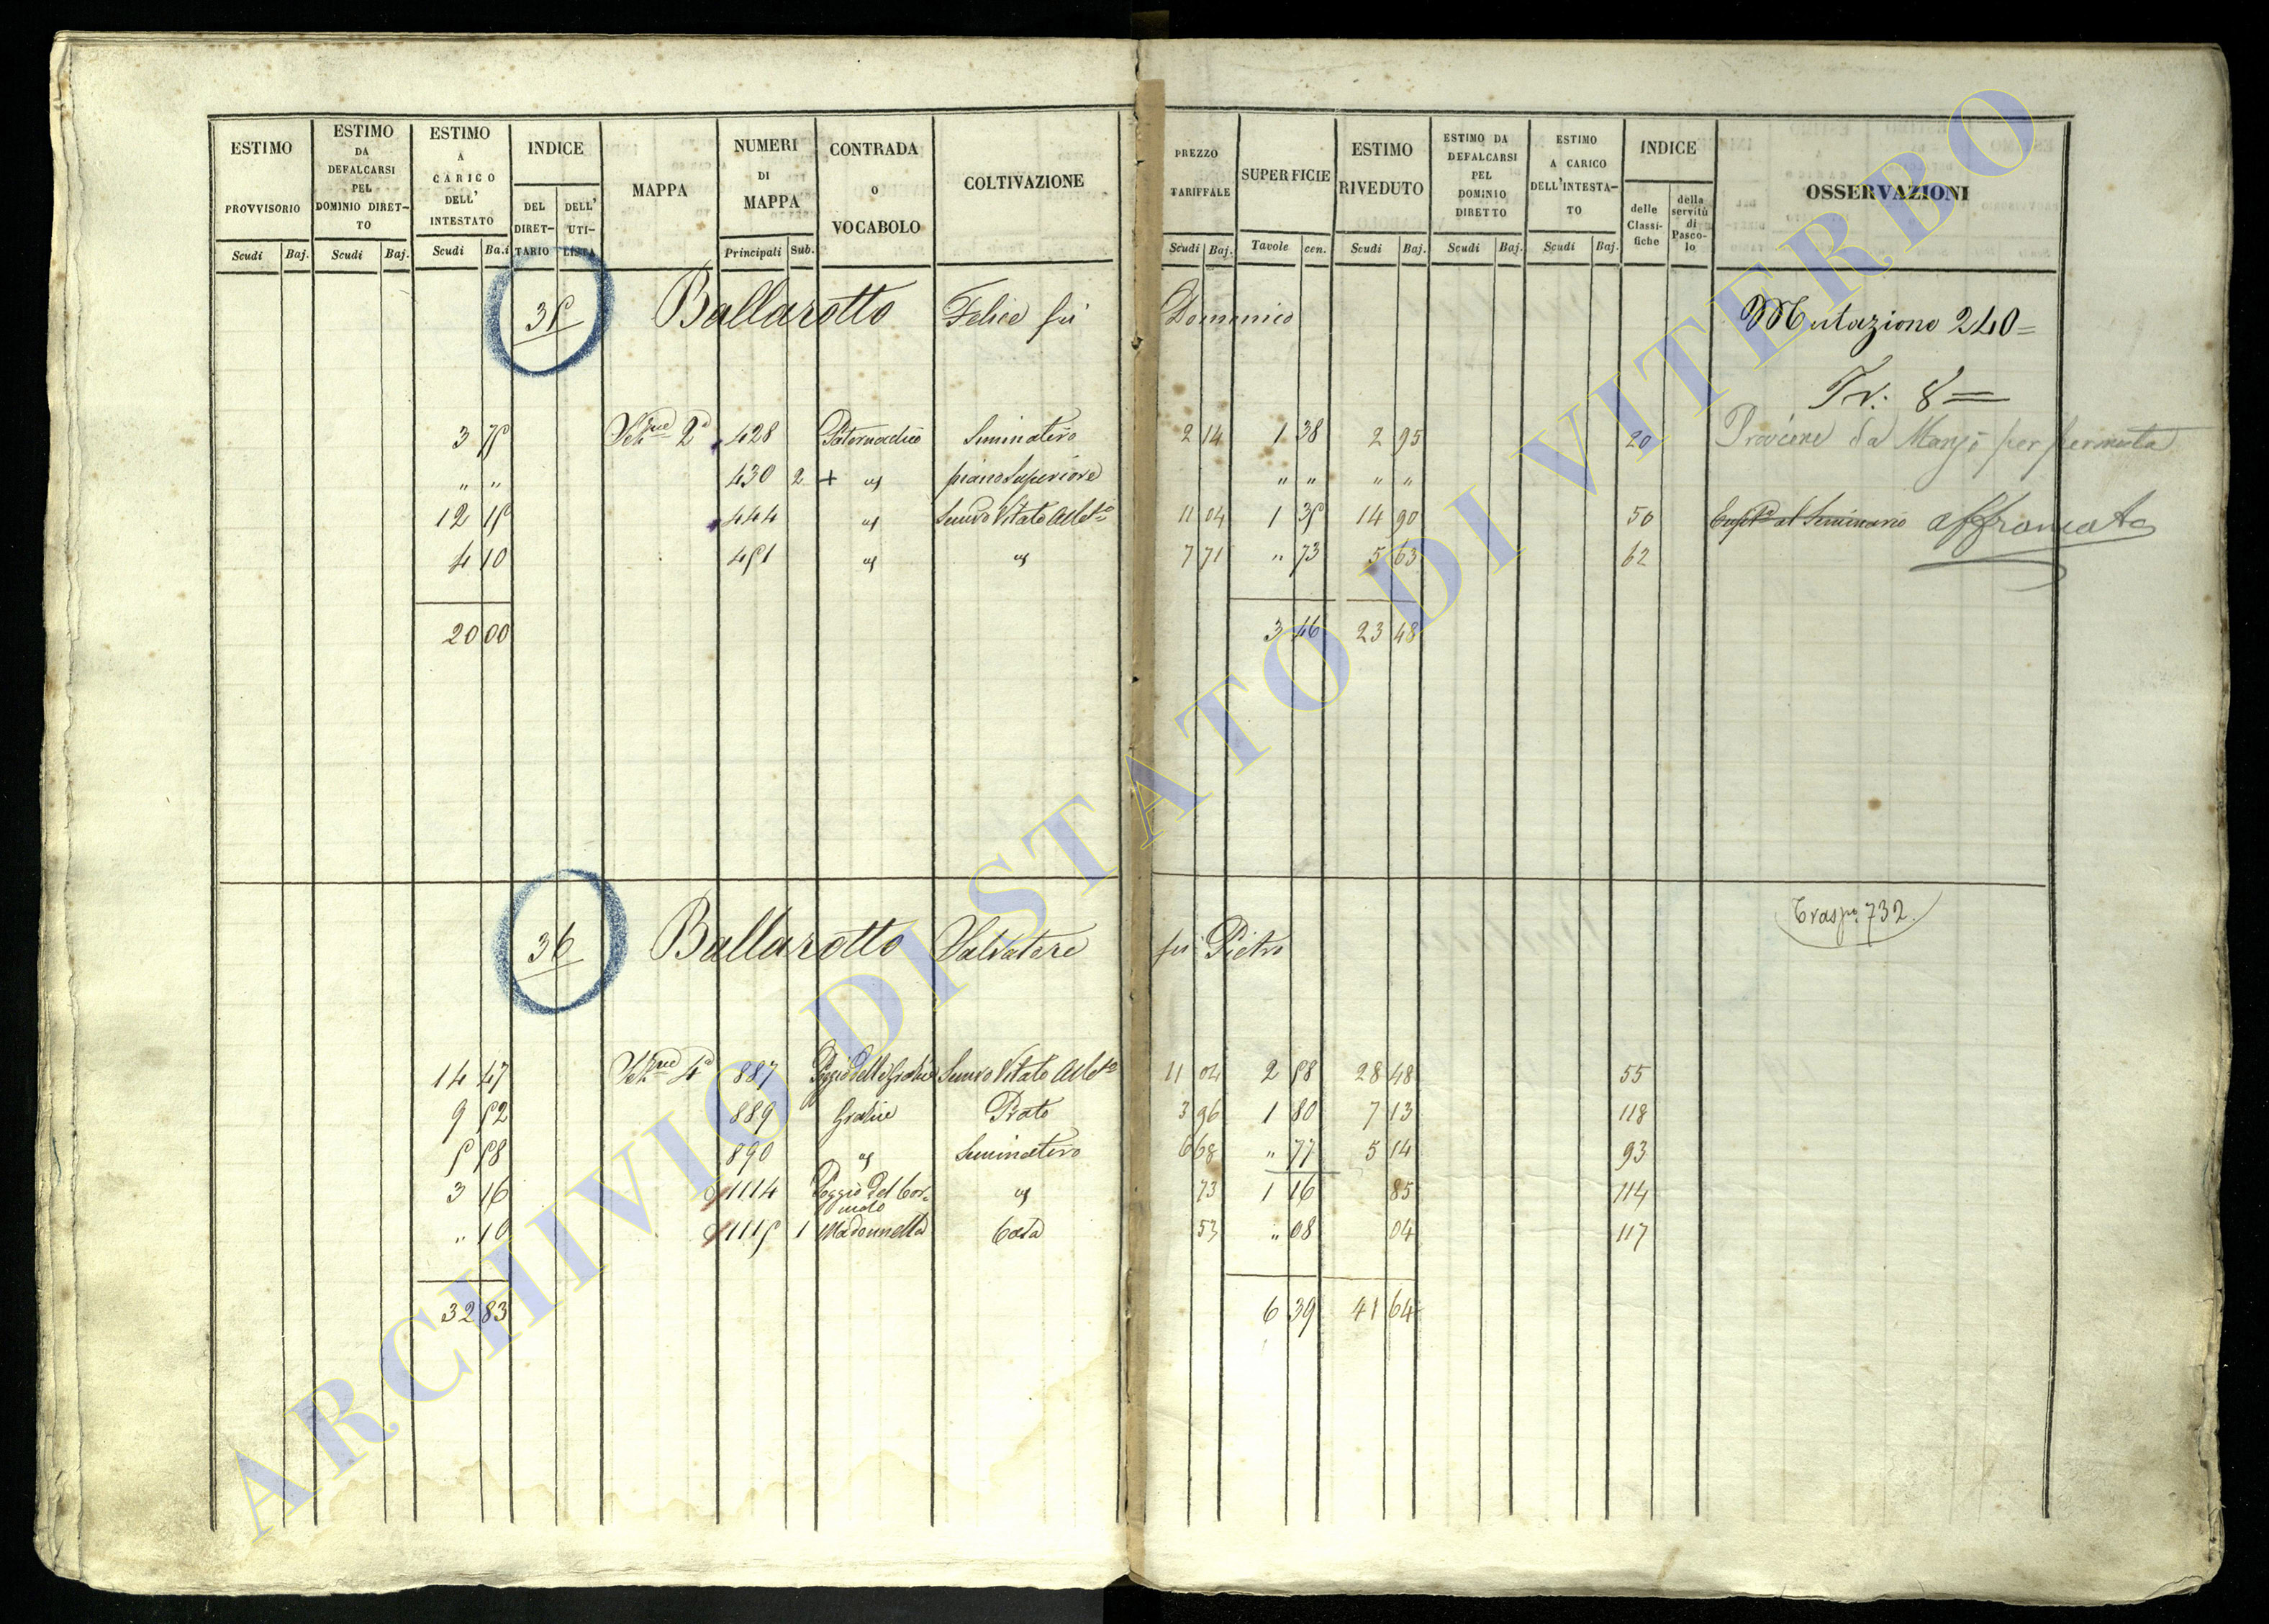 ESTIMO PROVVISORIO
ESTIMO DA DEFALCARSI PEL DOMINIO DIRET-TO
ESTIMO A CARICO DELL' INTESTATO
INDICE
DEL DIRET-TARIO
DELL' UTI-LISTA
MAPPA
NUMERI DI MAPPA
CONTRADA O VOCABOLO
COLTIVAZIONE
PREZZO TARIFFALE
SUPERFICIE
ESTIMO RIVEDUTO
ESTIMO DA DEFALCARSI PEL DOMINIO DIRETTO
ESTIMO A CARICO DELL'INTESTA-TO
INDICE
delle Classi-fiche
della servitù di Pasco-lo
OSSERVAZIONI
Scudi Baj. Scudi Baj. Scudi Ba.i Principali Sub. Scudi Baj. Tavole cen. Scudi Baj. Scudi Baj. Scudi Baj.
35 Ballarotto Felice fu Domenico Mutazione 240=
Tr: 8=
3 75 2ª 428 Seminativo 2 14 1 38 2 95 20 Proviene da Manzi per permuta
" " 430 2 + piano Superiore " " " "
12 15 444 Semvo Vitato 11 04 1 35 14 90 50 al Seminario affrancata
4 10 451 7 71 " 73 5 63 62
20 00 3 46 23 48
36 Ballarotto Salvatore fu Pietro Trasp. 732.
14 47 4ª 887 Semvo Vitato 11 04 2 58 28 48 55
9 52 889 Prato 3 96 1 80 7 13 118
5 58 890 Seminativo 6 68 " 77 5 14 93
3 16 1114 Poggio del 73 1 16 85 114
" 10 1115 1 Madonnella Casa 53 " 08 04 117
32 83 6 39 41 64
ARCHIVIO DI STATO DI VITERBO